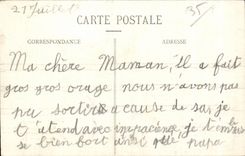 21 Juillet
35
CARTE POSTALE
CORRESPONDANCE
ADRESSE
Ma chère Maman, il a fait
gros gros orage nous n'avons pas
pu sortire a cause de sa, je
t'atend avec impacience, je t'em
se bien fort ainsi que papa